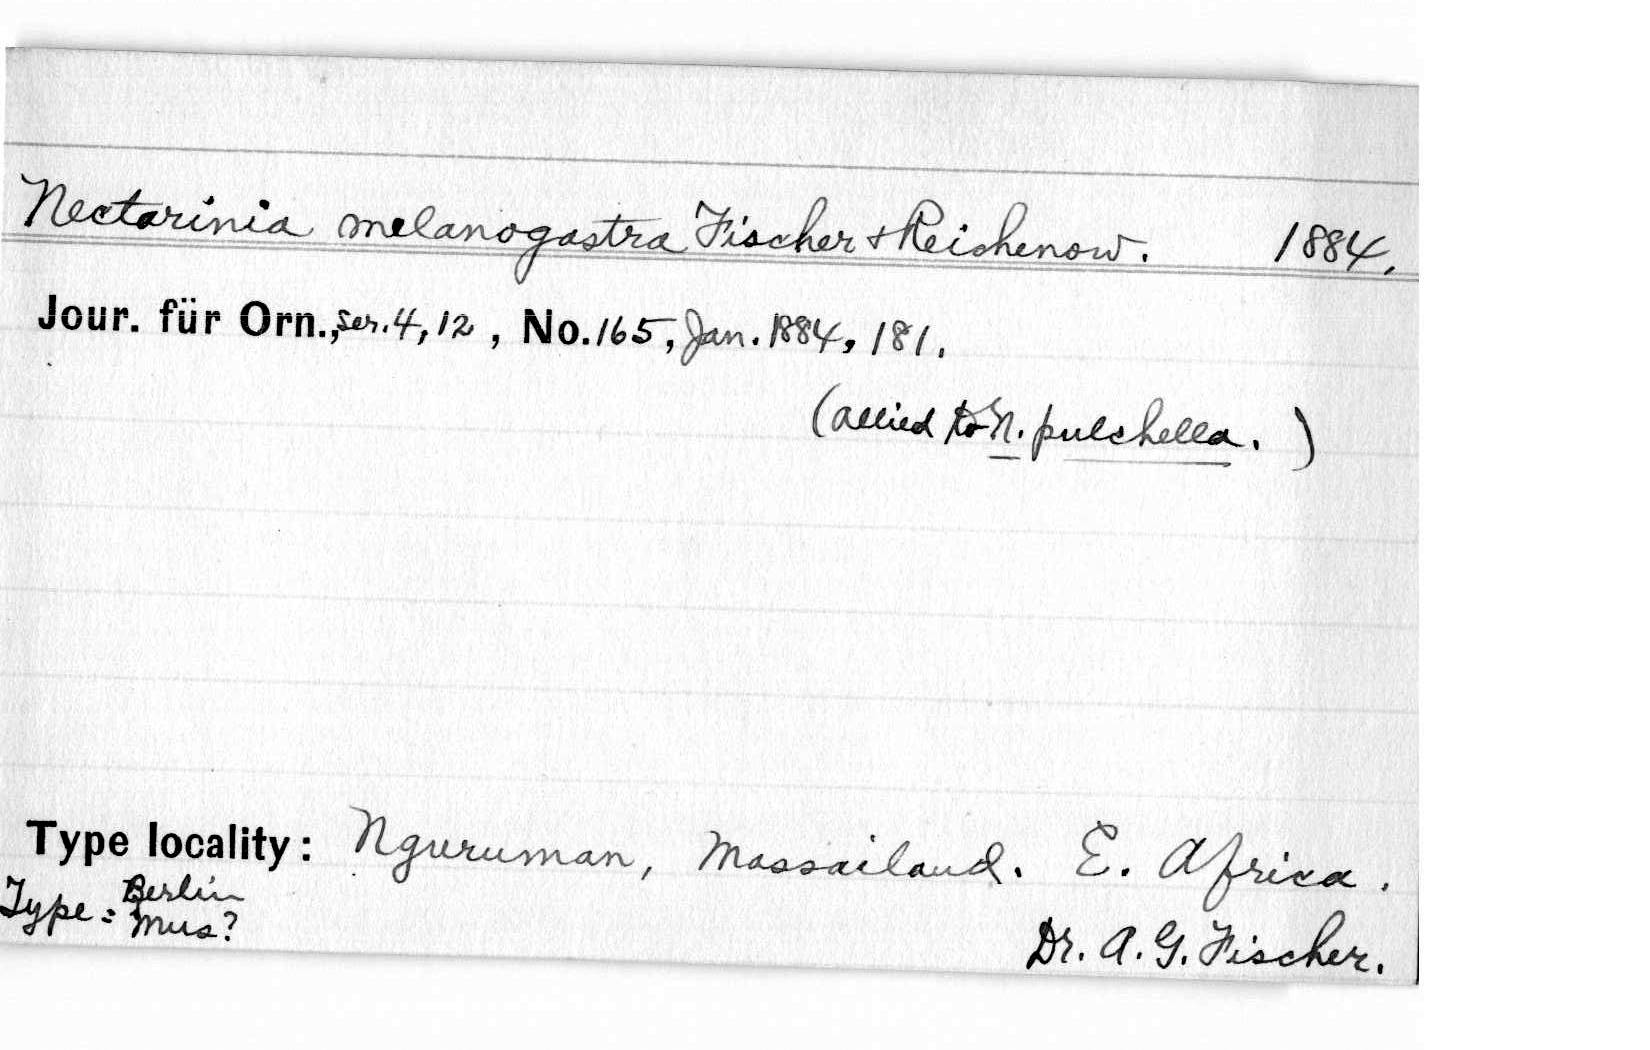 Nectarinia melanogastra Fischer & Reichenow. 1884.
Jour. für Orn., ser. 4, 12, No. 165, Jan. 1884, 181.
(allied to N. pulchella.)
Type locality: Nguruman, Massailand. E. Africa.
Type = Berlin
Mus?
Dr. A. G. Fischer.